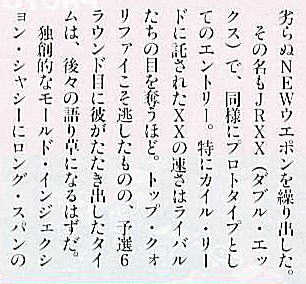 劣らぬNEWウエポンを繰り出した。
その名もJRXX（ダブル・エッ
クス）で、同様にプロトタイプとし
てのエントリー。特にカイル・リー
ドに託されたXXの速さはライバル
たちの目を奪うほど。トップ・クォ
リファイこそ逃したものの、予選6
ラウンド目に彼がたたき出したタイ
ムは、後々の語り草になるはずだ。
独創的なモールド・インジェクシ
ョン・シャシーにロング・スパンの